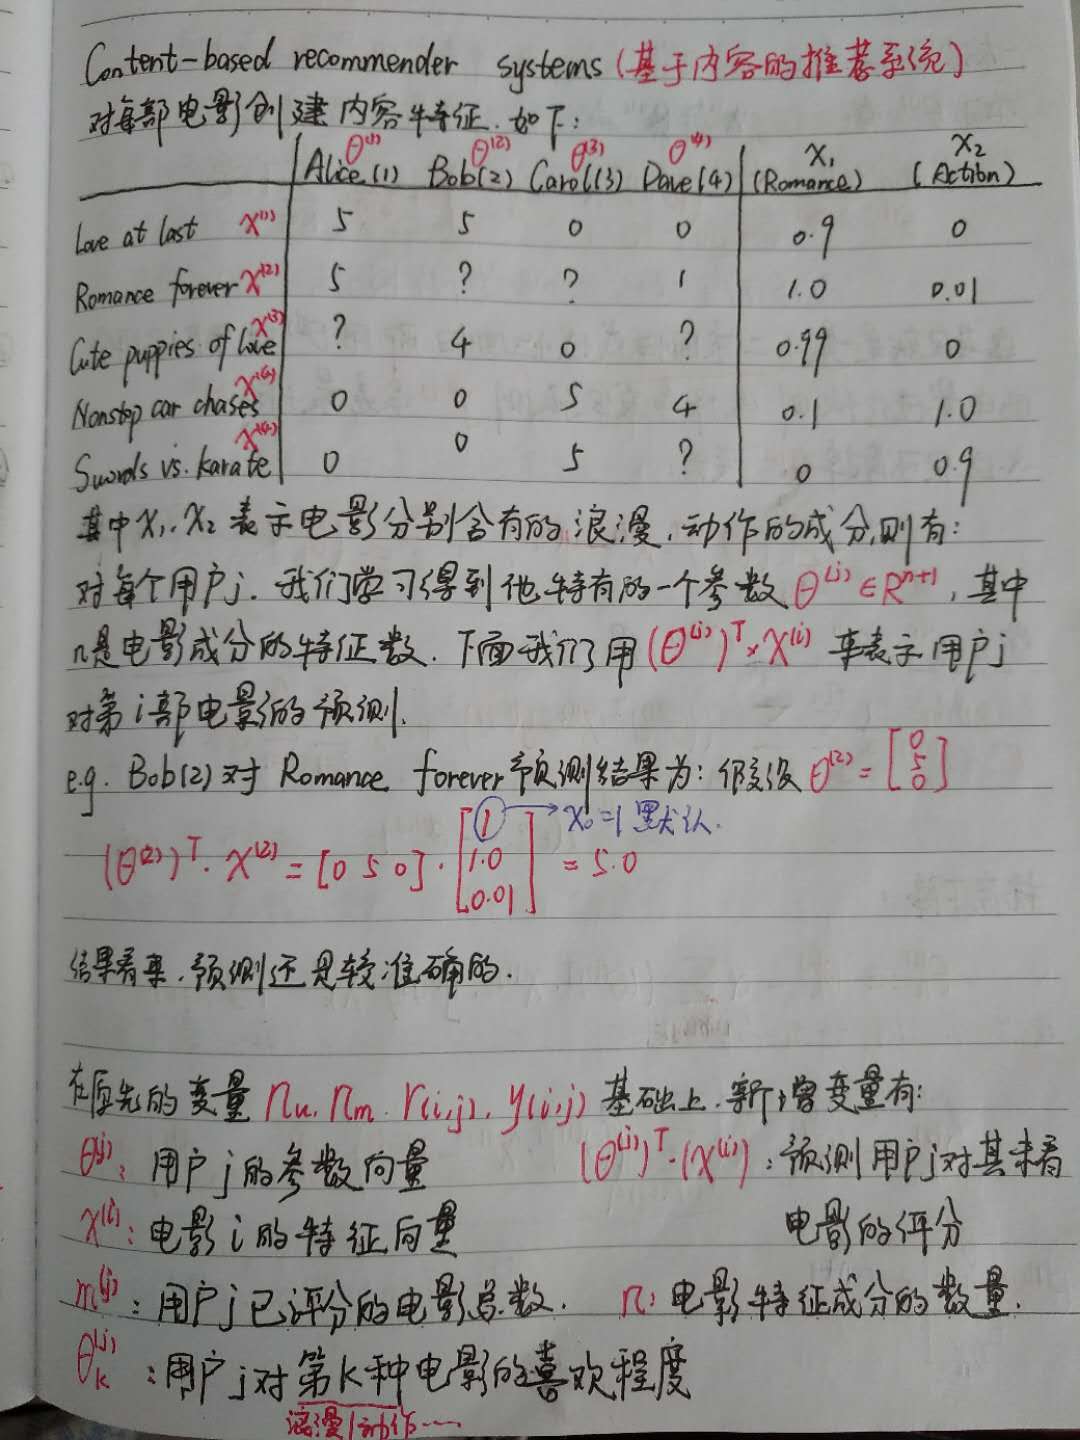 Content-based recommender systems (基于内容的推荐系统)
对每部电影创建内容特征.如下:
θ⁽¹⁾ θ⁽²⁾ θ⁽³⁾ θ⁽⁴⁾ X₁ X₂
Alice(1) Bob(2) Carol(3) Dave(4) (Romance) (Action)
Love at last X⁽¹⁾ 5 5 0 0 0.9 0
Romance forever X⁽²⁾ 5 ? ? 1 1.0 0.01
Cute puppies of love X⁽³⁾ ? 4 0 ? 0.99 0
Nonstop car chases X⁽⁴⁾ 0 0 5 4 0.1 1.0
Swords vs. karate 0 0 5 ? 0 0.9
其中X₁.X₂表示电影分别含有的浪漫.动作的成分,则有:
对每个用户j.我们学习得到他特有的一个参数θ⁽ʲ⁾∈Rⁿ⁺¹,其中
n是电影成分的特征数.下面我们用(θ⁽ʲ⁾)ᵀ×X⁽ⁱ⁾来表示用户j
对第i部电影的预测.
e.g. Bob(2)对Romance forever预测结果为:假设θ⁽²⁾=[0 5 0]
(θ⁽²⁾)ᵀ·X⁽²⁾=[0 5 0]·[1 1.0 0.01]=5.0 → X₀=1默认.
结果看来.预测还是较准确的.
在原先的变量nu.nm.r(i,j).y(i,j)基础上.新增变量有:
θ⁽ʲ⁾:用户j的参数向量 (θ⁽ʲ⁾)ᵀ·(X⁽ⁱ⁾):预测用户j对其未看
X⁽ⁱ⁾:电影i的特征向量 电影的评分
m⁽ʲ⁾:用户j已评分的电影总数. n:电影特征成分的数量.
θₖ⁽ʲ⁾:用户j对第k种电影的喜欢程度
浪漫/动作……